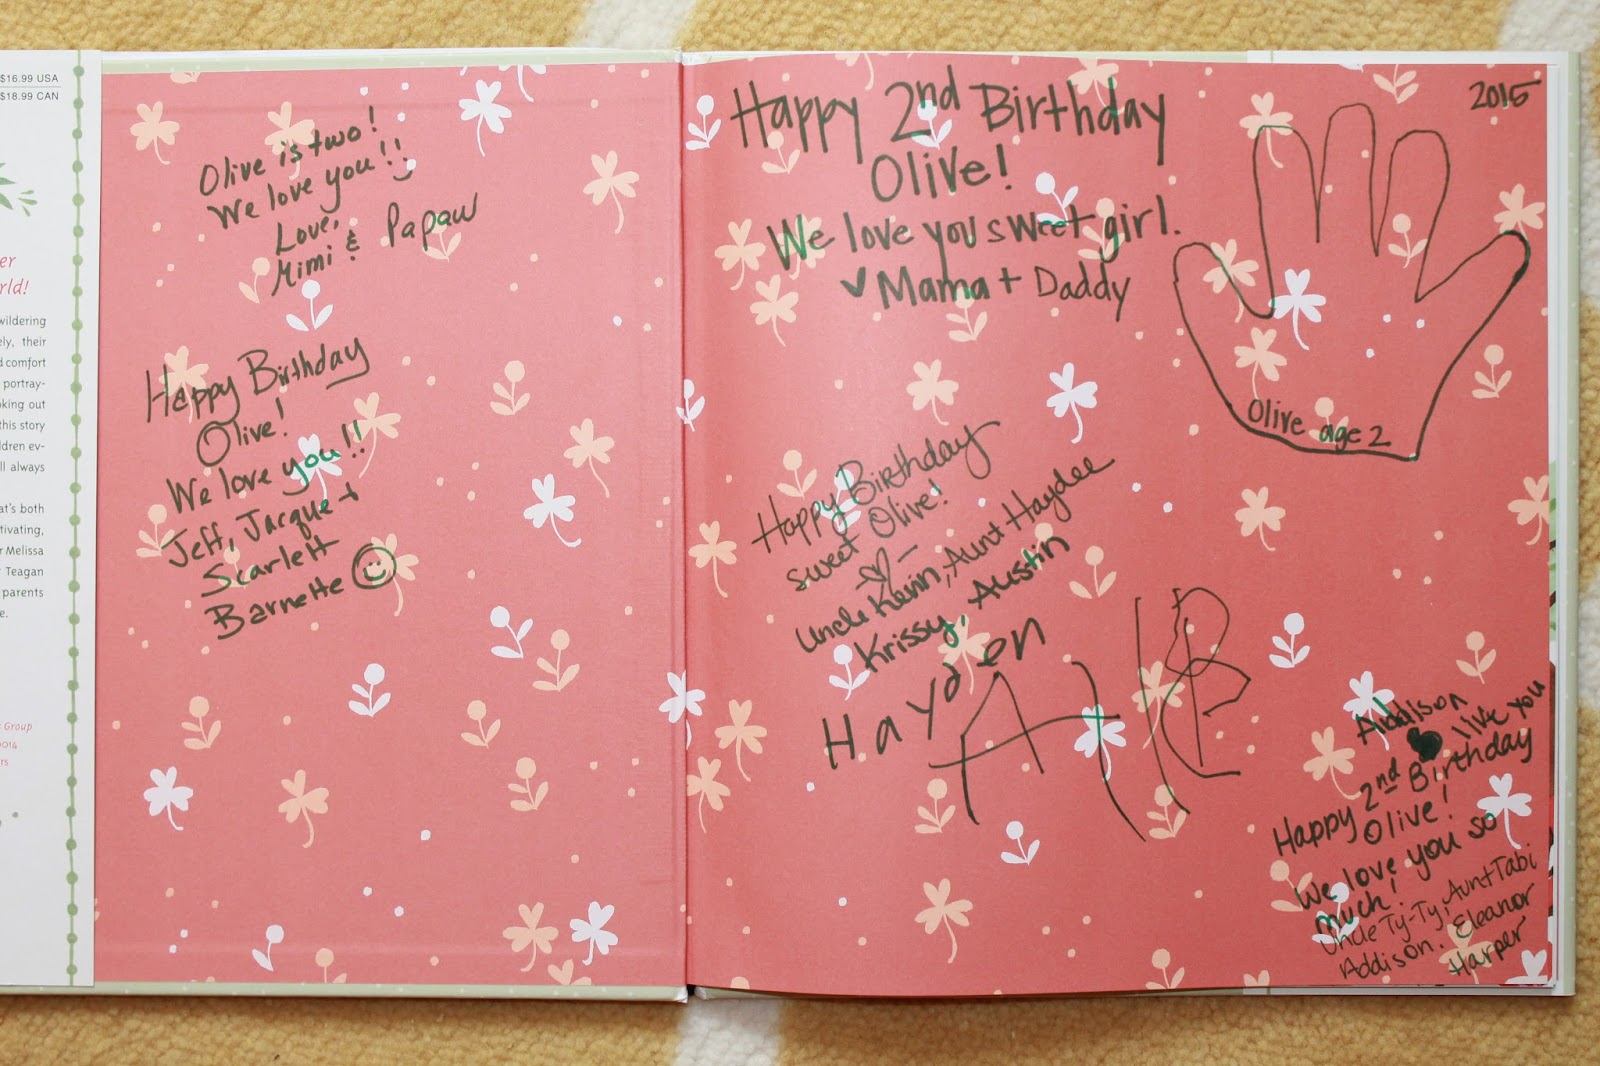 $16.99 USA
$18.99 CAN
er
rld!
wildering
ely, their
d comfort
portray-
king out
this story
ldren ev-
ll always
at's both
tivating,
r Melissa
Teagan
parents
e.
Group
0014
ers
Olive is two!
We love you!!
Love,
Mimi & Papaw
Happy Birthday
Olive!
We love you!!
Jeff, Jacque +
Scarlett
Barnette
2015
Happy 2nd Birthday
Olive!
We love you sweet girl.
♥ Mama + Daddy
Olive age 2
Happy Birthday
sweet Olive!
Uncle Kevin, Aunt Haydee
Krissy, Austin
Hayden
AHB
Addison
♥ live you
Happy 2nd Birthday
Olive!
We love you so
much!
Uncle Ty-Ty, Aunt Tabi
Addison, Eleanor
Harper